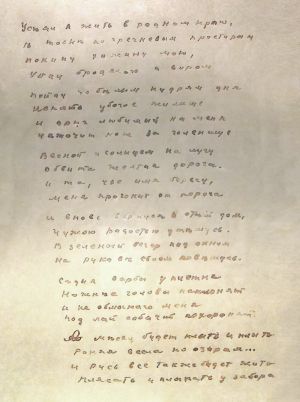 Устал я жить в родном краю,
В тоске по гречневым просторам
Покину хижину мою,
Уйду бродягою и вором.
Пойду по белым кудрям дня
Искать убогое жилище
И друг любимый на меня
Наточит нож за голенище
Весной и солнцем на лугу
Обвита желтая дорога.
И та, чье имя берегу,
Меня прогонит от порога
И вновь вернуся в отчий дом,
Чужою радостью утешусь.
В зеленый вечер под окном
На рукаве своем повешусь.
Седые вербы у плетня
Нежнее головы наклонят
И необмытого меня
Под лай собачий похоронят.
А месяц будет плыть и плыть
Роняя весла по озерам...
И Русь все так же будет жить
Плясать и плакать у забора